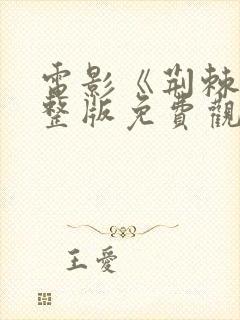 電影《荆棘
整版免費觀
王愛